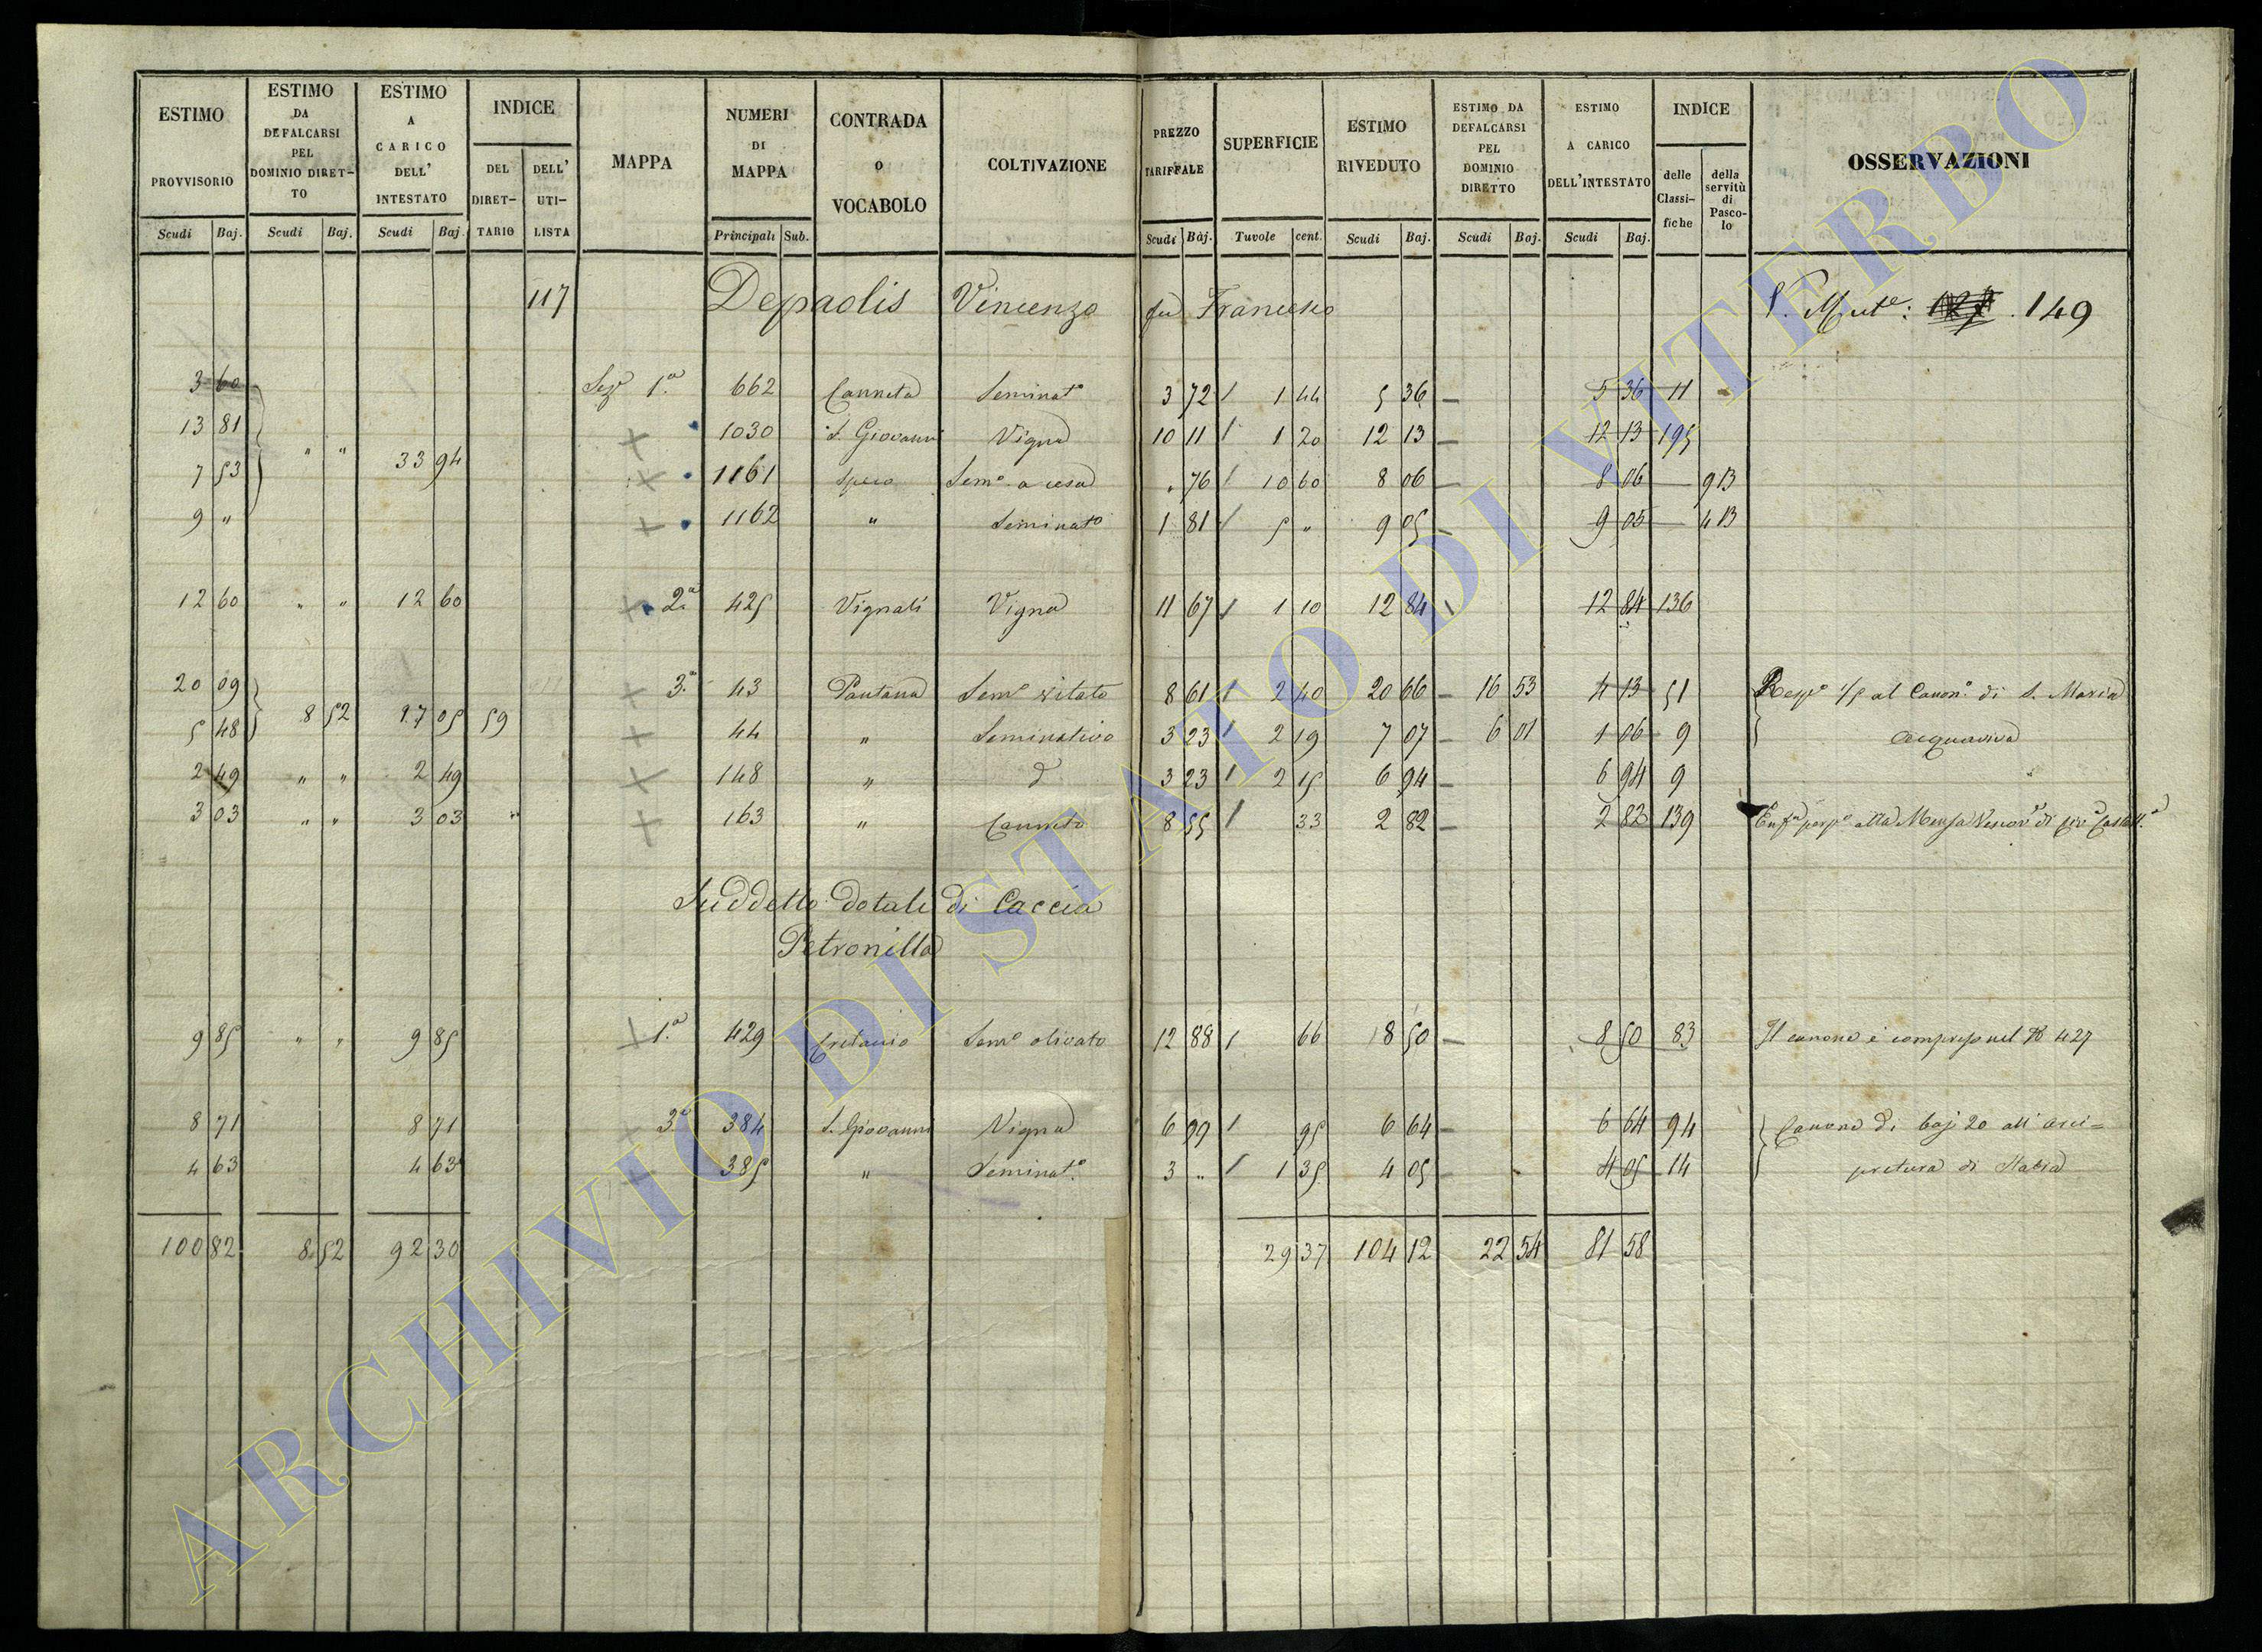 ESTIMO PROVVISORIO | ESTIMO DA DEFALCARSI PEL DOMINIO DIRETTO | ESTIMO A CARICO DELL' INTESTATO | INDICE DEL DIRETTARIO | DELL' UTILISTA | MAPPA | NUMERI DI MAPPA | CONTRADA O VOCABOLO | COLTIVAZIONE | PREZZO TARIFFALE | SUPERFICIE | ESTIMO RIVEDUTO | ESTIMO DA DEFALCARSI PEL DOMINIO DIRETTO | ESTIMO A CARICO DELL'INTESTATO | INDICE delle Classifiche | della servitù di Pascolo | OSSERVAZIONI
Scudi Baj. | Scudi Baj. | Scudi Baj. | Principali Sub. | Scudi Baj. | Tuvole cent. | Scudi Baj. | Scudi Baj. | Scudi Baj.
117 Depaolis Vincenzo fu Francesco 149
3 60 1.ª 662 Canneta Seminat.º 3 72 1 44 5 36 5 36 11
13 81 1030 S. Giovanni Vigna 10 11 1 20 12 13 12 13 195
7 53 " " 33 94 1161 Speco Sem.º a cesa " 76 10 60 8 06 8 06 9 13
9 " 1162 " Seminato 1 81 5 " 9 05 9 05 4 13
12 60 " " 12 60 2.ª 425 Vignali Vigna 11 67 1 10 12 84 12 84 136
20 09 8 52 17 05 59 3.ª 43 Pantana Sem.º vitato 8 61 2 40 20 66 16 53 4 13 51 al Canon.º di S. Maria
5 48 44 " Seminativo 3 23 2 19 7 07 6 01 1 06 9 Acquaviva
2 49 " " 2 49 148 " d 3 23 2 15 6 94 6 94 9
3 03 " " 3 03 " 163 " Canneto 8 55 33 2 82 2 82 139 alla Mensa Vescov.
Suddetto dotale di Caccia
Petronilla
9 85 " " 9 85 1.ª 429 Sem.º olivato 12 88 66 8 50 8 50 83 Il canone è compreso nel N 427
8 71 8 71 3.ª 384 S. Giovanni Vigna 6 99 95 6 64 6 64 94 Canone di baj 20 all'Arci=
4 63 4 63 385 " Seminat.º 3 " 1 35 4 05 4 05 14 pretura di Stabia
100 82 8 52 92 30 29 37 104 12 22 54 81 58
ARCHIVIO DI STATO DI VITERBO